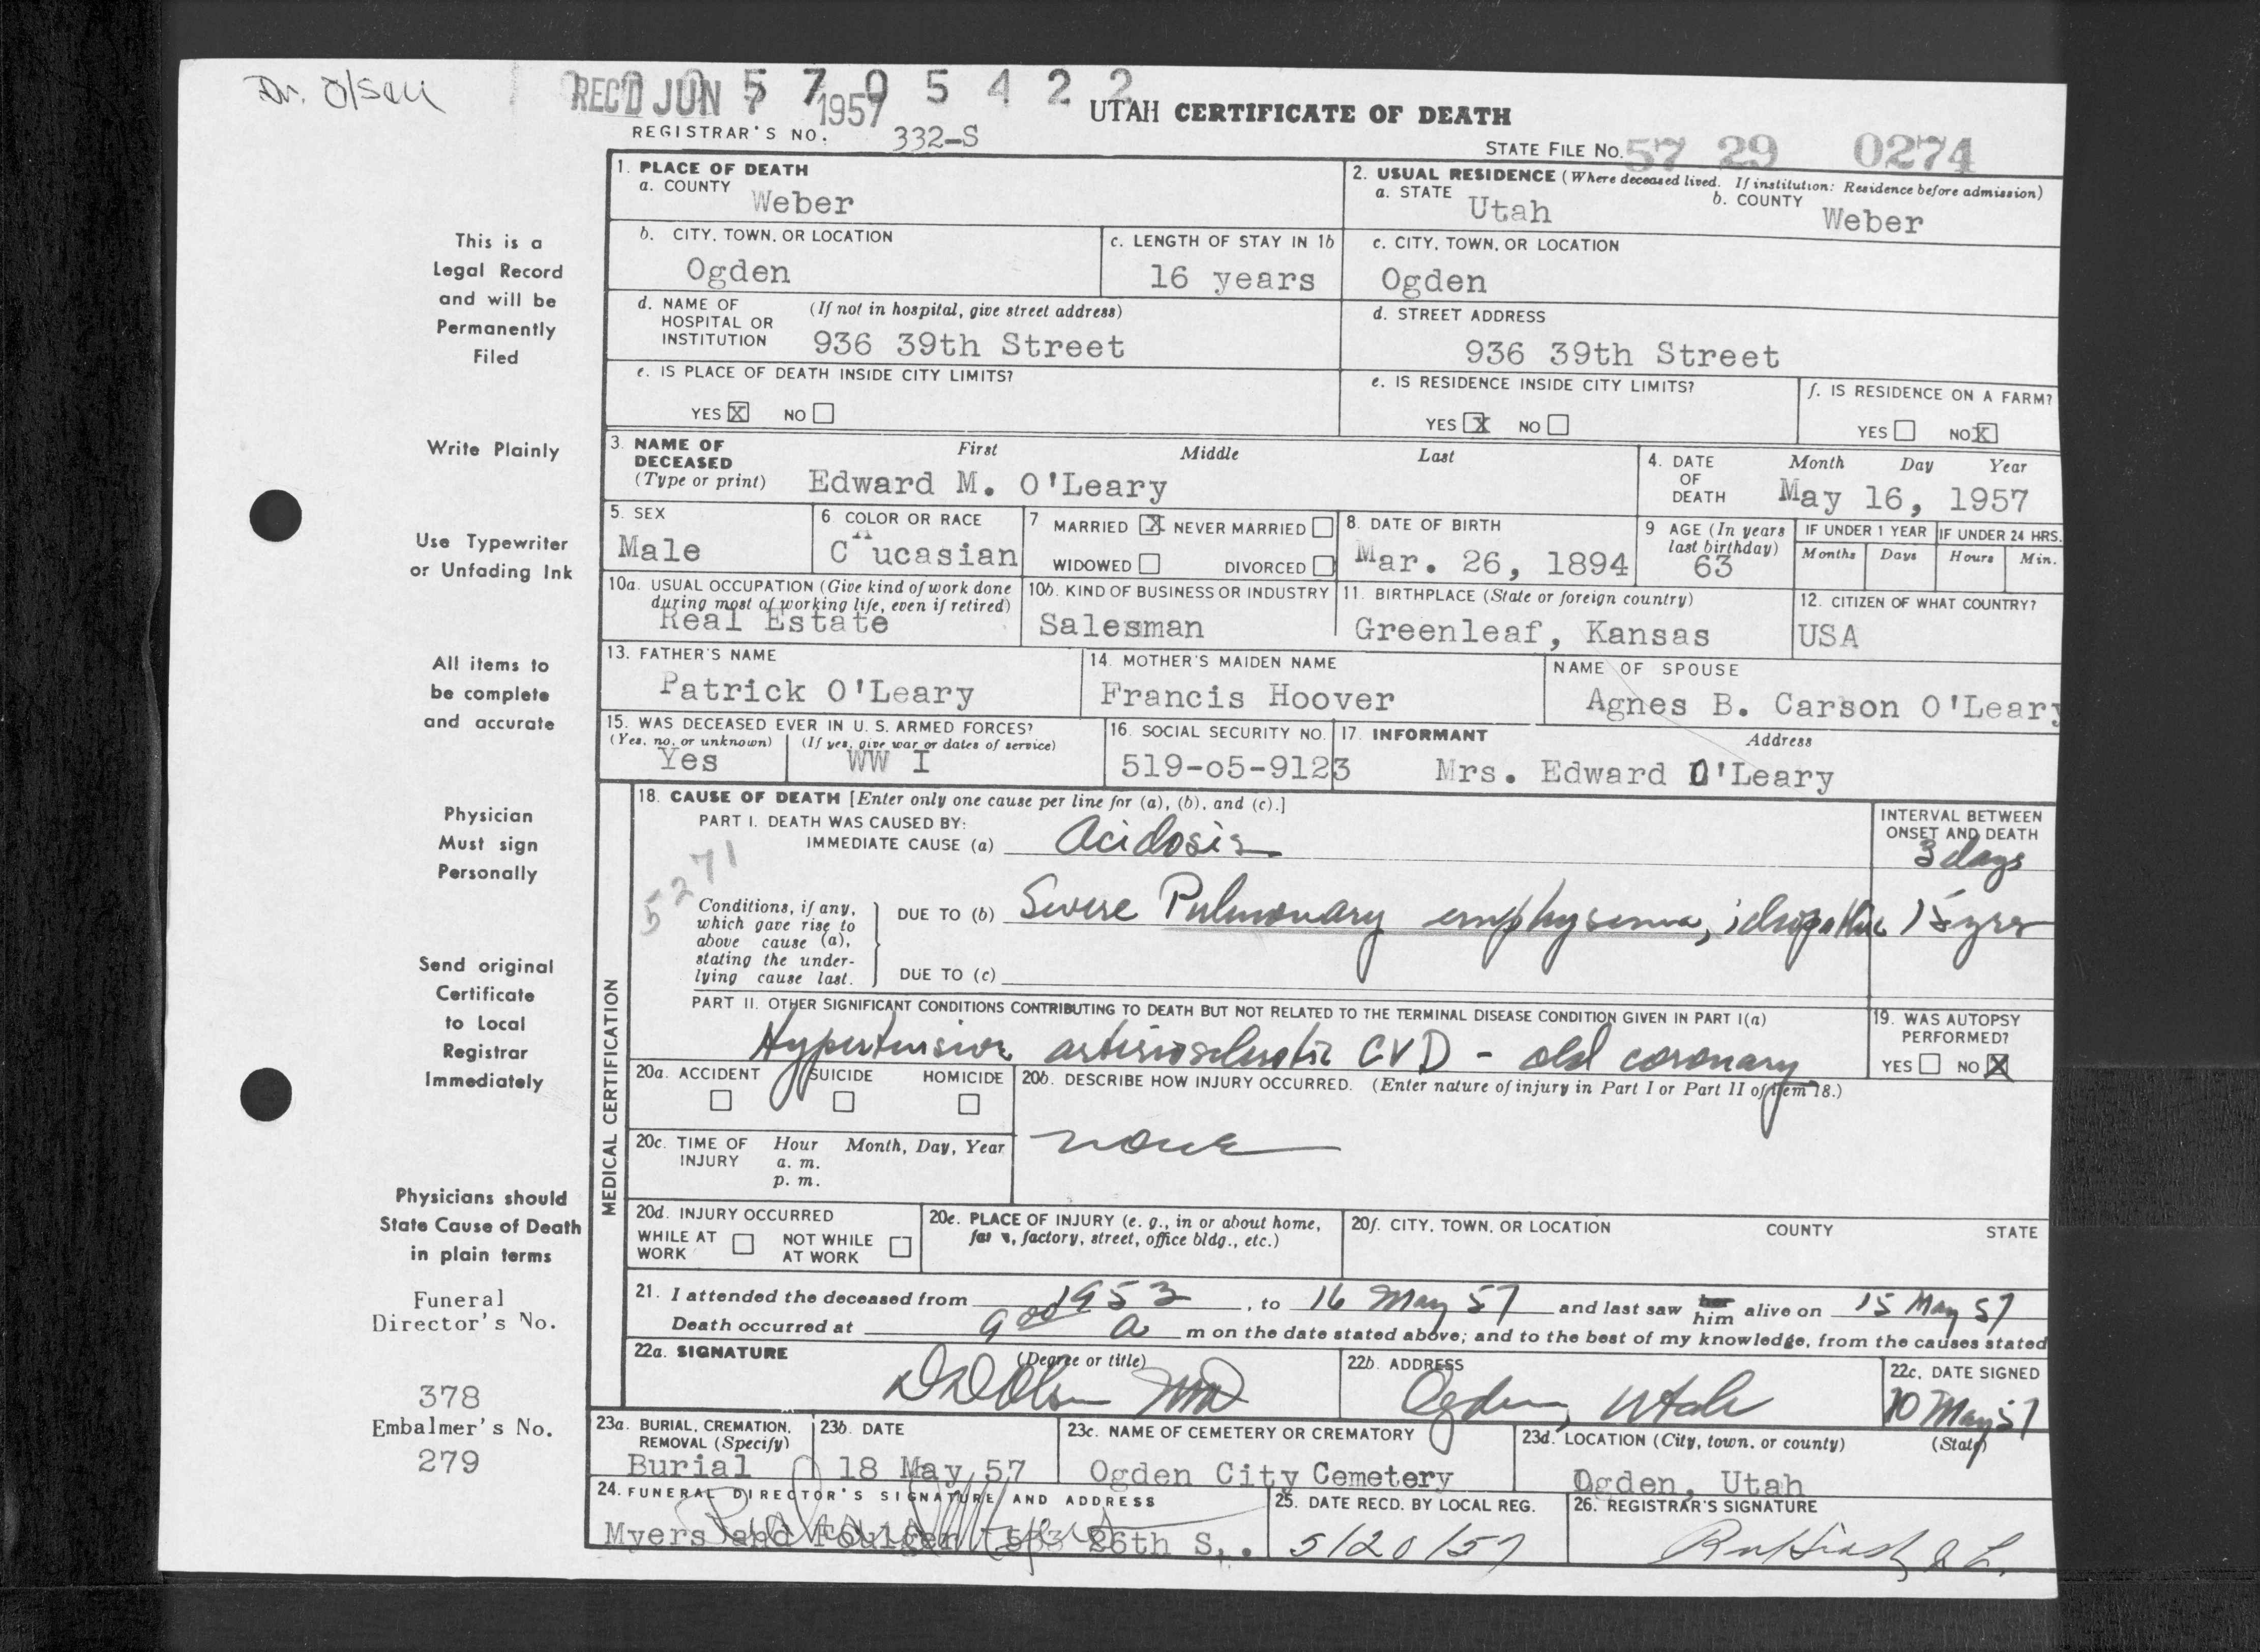 Dr. Olsen
REC'D JUN 7 1957
5 7 0 5 4 2 2
UTAH CERTIFICATE OF DEATH
REGISTRAR'S NO. 332-S
STATE FILE NO. 57 29 0274
1. PLACE OF DEATH
a. COUNTY Weber
2. USUAL RESIDENCE (Where deceased lived. If institution: Residence before admission)
a. STATE Utah b. COUNTY Weber
b. CITY, TOWN, OR LOCATION Ogden
c. LENGTH OF STAY IN 1b 16 years
c. CITY, TOWN, OR LOCATION Ogden
d. NAME OF HOSPITAL OR INSTITUTION (If not in hospital, give street address) 936 39th Street
d. STREET ADDRESS 936 39th Street
e. IS PLACE OF DEATH INSIDE CITY LIMITS?
YES X NO
e. IS RESIDENCE INSIDE CITY LIMITS?
YES X NO
f. IS RESIDENCE ON A FARM?
YES NO X
3. NAME OF DECEASED (Type or print) First Middle Last
Edward M. O'Leary
4. DATE OF DEATH Month Day Year
May 16, 1957
5. SEX Male
6 COLOR OR RACE Caucasian
7 MARRIED X NEVER MARRIED
WIDOWED DIVORCED
8. DATE OF BIRTH Mar. 26, 1894
9 AGE (In years last birthday) 63
IF UNDER 1 YEAR Months Days
IF UNDER 24 HRS. Hours Min.
10a. USUAL OCCUPATION (Give kind of work done during most of working life, even if retired) Real Estate
10b. KIND OF BUSINESS OR INDUSTRY Salesman
11. BIRTHPLACE (State or foreign country) Greenleaf, Kansas
12. CITIZEN OF WHAT COUNTRY? USA
13. FATHER'S NAME Patrick O'Leary
14. MOTHER'S MAIDEN NAME Francis Hoover
NAME OF SPOUSE Agnes B. Carson O'Leary
15. WAS DECEASED EVER IN U. S. ARMED FORCES?
(Yes, no, or unknown) Yes
(If yes, give war or dates of service) WW I
16. SOCIAL SECURITY NO. 519-o5-9123
17. INFORMANT Address
Mrs. Edward O'Leary
MEDICAL CERTIFICATION
18. CAUSE OF DEATH [Enter only one cause per line for (a), (b), and (c).]
PART I. DEATH WAS CAUSED BY:
IMMEDIATE CAUSE (a) Acidosis
INTERVAL BETWEEN ONSET AND DEATH
3 days
5271
Conditions, if any, which gave rise to above cause (a), stating the underlying cause last.
DUE TO (b) Severe Pulmonary emphysema, idiopathic 15 yrs
DUE TO (c)
PART II. OTHER SIGNIFICANT CONDITIONS CONTRIBUTING TO DEATH BUT NOT RELATED TO THE TERMINAL DISEASE CONDITION GIVEN IN PART I(a)
Hypertensive arteriosclerotic CVD - old coronary
19. WAS AUTOPSY PERFORMED?
YES NO X
20a. ACCIDENT SUICIDE HOMICIDE
20b. DESCRIBE HOW INJURY OCCURRED. (Enter nature of injury in Part I or Part II of item 18.)
none
20c. TIME OF INJURY Hour Month, Day, Year
a. m.
p. m.
20d. INJURY OCCURRED
WHILE AT WORK NOT WHILE AT WORK
20e. PLACE OF INJURY (e. g., in or about home, farm, factory, street, office bldg., etc.)
20f. CITY, TOWN, OR LOCATION COUNTY STATE
21. I attended the deceased from 1953, to 16 May 57 and last saw her him alive on 15 May 57
Death occurred at 9 00 a m on the date stated above; and to the best of my knowledge, from the causes stated
22a. SIGNATURE (Degree or title)
Olsen MD
22b. ADDRESS Ogden, Utah
22c. DATE SIGNED
May 57
23a. BURIAL, CREMATION, REMOVAL (Specify) Burial
23b. DATE 18 May 57
23c. NAME OF CEMETERY OR CREMATORY Ogden City Cemetery
23d. LOCATION (City, town, or county) (State)
Ogden, Utah
24. FUNERAL DIRECTOR'S SIGNATURE AND ADDRESS
Myers and Foulger 26th
25. DATE RECD. BY LOCAL REG. 5/20/57
26. REGISTRAR'S SIGNATURE
This is a
Legal Record
and will be
Permanently
Filed
Write Plainly
Use Typewriter
or Unfading Ink
All items to
be complete
and accurate
Physician
Must sign
Personally
Send original
Certificate
to Local
Registrar
Immediately
Physicians should
State Cause of Death
in plain terms
Funeral
Director's No.
378
Embalmer's No.
279